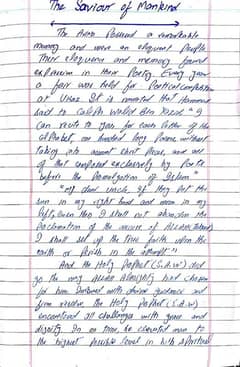 The Saviour of Mankind
The Arabs Possesed a remarkable
memory and were an eloquent people
Their eloquence and memory found
expression in their Poetry. Every year
a fair was held for Poetical competition
at Ukaz. It is narrated that Hammad
said to Caliph Walid Bin Yazid "I
can recite to you, for each letter of the
alphabet, one hundred long Poems, without
taking into account short pieces, and all
of that composed exclusively by Poets
before the Promulgation of Islam"
"My dear uncle, if they put the
sun in my right hand and moon in my
left, even then I shall not abandon the
Proclamation of the oneness of Allah (Tawhid)
I shall set up the true faith upon the
earth or Perish in the attempt"
And the Holy Prophet (S.A.W) did
go the way Allah Almighty had chosen
for him. Endowed with divine guidance and
firm resolve the Holy Prophet (S.A.W)
encountered all challenges with grace and
dignity. In no time, he elevated man to
the highest possible level in both spiritual